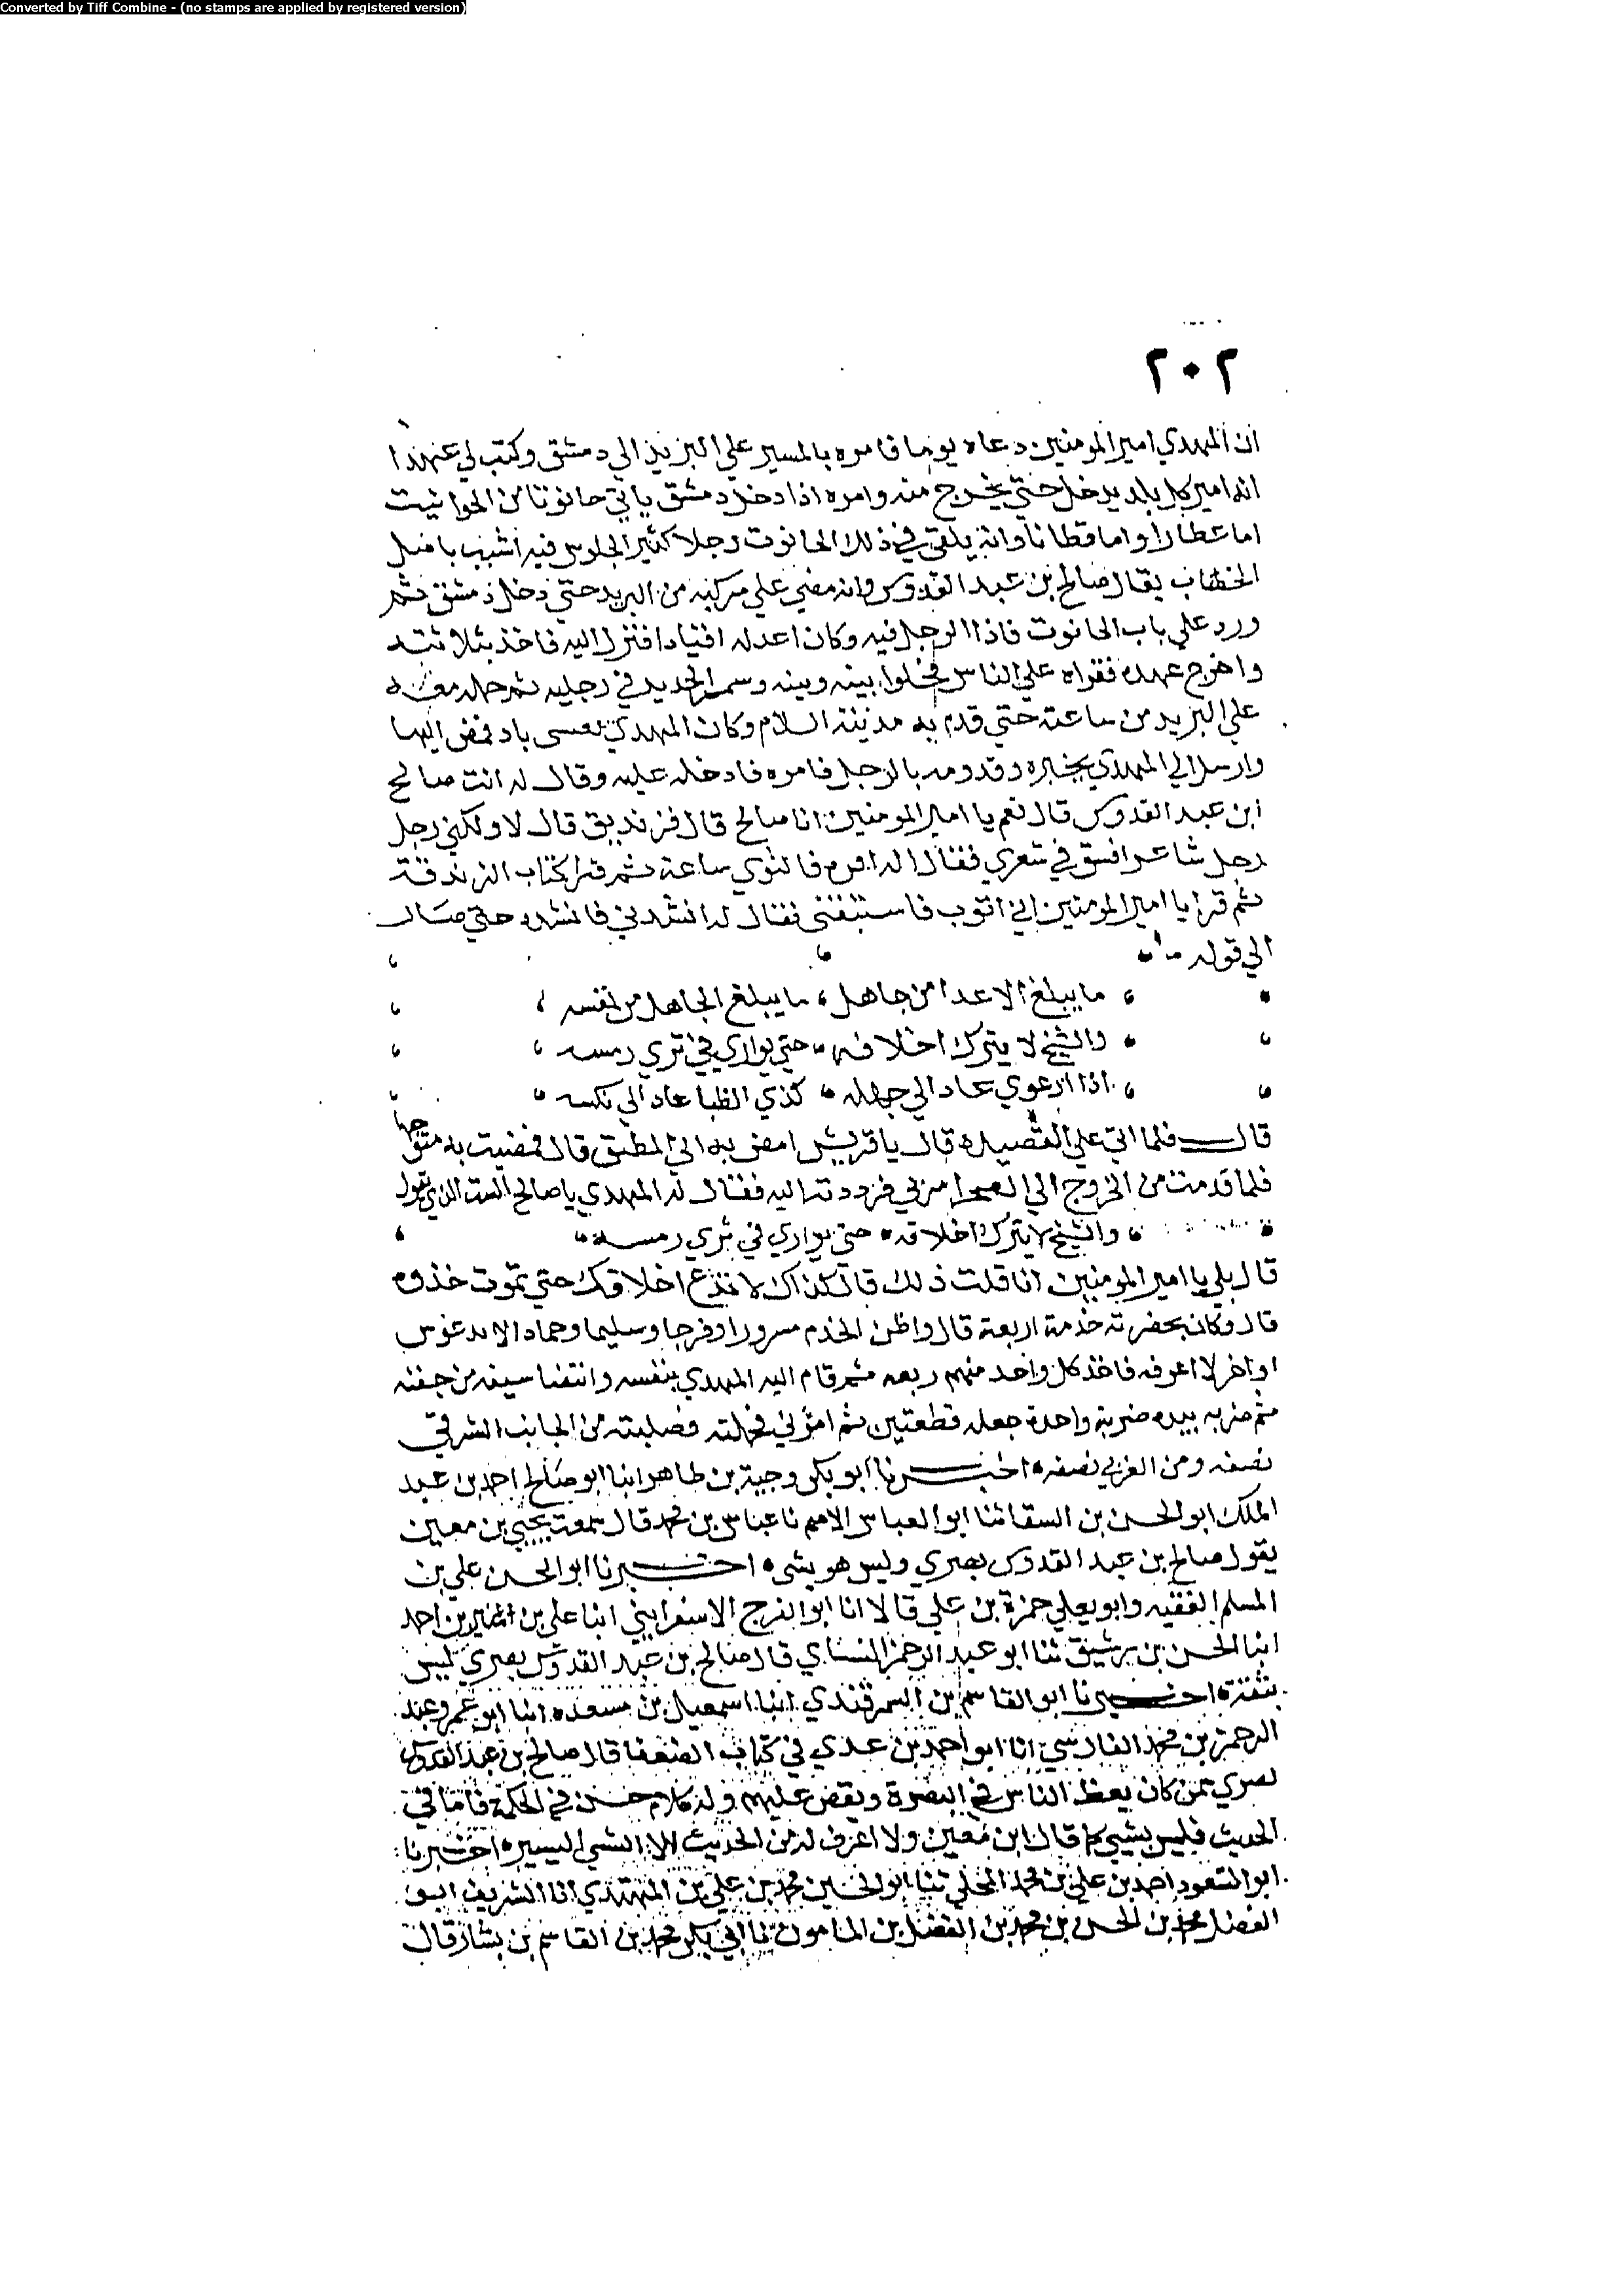 Converted by Tiff Combine - (no stamps are applied by registered version)
٢٠٢
ان المهدي امير المومنين دعاه يوما فامره بالمسير علي البريد الي دمشق وكتب لي عهدا
انه امير كل بلد يدخل حتي يخرج منه وامره اذا دخل دمشق ياتي حانوتا من الحوانيت
اما عطارا واما قطانا وانه يلقي في ذلك الحانوت رجلا كثير الجلوس فيه اشيب
الخضاب يقال صالح بن عبد القدوس وانه مضي علي مركبه من البريد حتي دخل دمشق ثم
ورد علي باب الحانوت فاذا الرجل فيه وكان اعد له اقيادا فنزل اليه فاخذ
واخرج عهده فقراه علي الناس فخلوا بينه وبينه وسمر الحديد في رجليه ثم حمله معه
علي البريد من ساعته حتي قدم به مدينة السلام وكان المهدي فمض اليها
وارسل الي المهدي يخبره وقدومه بالرجل فامره فادخله عليه وقال له انت صالح
ابن عبد القدوس قال نعم يا امير المومنين انا صالح قال فزنديق قال لا ولكني رجل
رجل شاعر افسق في شعري فقال له اقره فالتوي ساعة ثم قرا كتاب الزندقة
ثم قرا يا امير المومنين اني اتوب فاستبقني فقال له انشدني فانشده حتي صار
الي قوله
ما يبلغ الاعدا من جاهل ما يبلغ الجاهل من نفسه
والشيخ لا يترك اخلاقه حتي يواري في ثري رمسه
اذا ارعوي عاد الي جهله كذي الظبا عاد الي نكسه
قال فلما اتي علي القصيده قال يا قريش امض به الي المطبق قال فمضيت به متوجها
فلما قدمت من الخروج الي الصحرا امرني فرددته اليه فقال له المهدي يا صالح الست الذي تقول
والشيخ لا يترك اخلاقه حتي يواري في ثري رمسه
قال بلي يا امير المومنين انا قلت ذلك قال كذاك لا تدع اخلاقك حتي تموت خذوه
قال وكان بحضرته خدمة اربعة قال واظن الخدم مسرورا وفرجا وسليما وحماد
او اخر لا اعرفه فاخذ كل واحد منهم ربعه ثم قام اليه المهدي بنفسه وانتضا سيفه من جفنه
ثم ضربه بيده ضربة واحدة جعله قطعتين ثم امرني فحملته فصلبته من الجانب الشرقي
نصفه ومن الغربي نصفه اخبرنا ابو بكر وجيه بن طاهر ابنا ابو صالح احمد بن عبد
الملك ابو الحسن بن السقا ثنا ابو العباس الاصم نا عباس بن محمد قال سمعت يحيي بن معين
يقول صالح بن عبد القدوس بصري وليس هو بشي اخبرنا ابو الحسن علي بن
المسلم الفقيه وابو يعلي حمزة بن علي قالا انا ابو الفرج الاسفرايني ابنا علي بن منير بن احمد
ابنا الحسن بن رشيق ثنا ابو عبد الرحمن النساي قال صالح بن عبد القدوس بصري ليس
بثقة اخبرنا ابو القاسم بن السمرقندي ابنا اسمعيل بن مسعده ابنا ابو عمرو عبد
الرحمن بن محمد الفارسي انا ابو احمد بن عدي في كتاب الضعفا قال صالح بن عبد القدوس
بصري ممن كان يعظ الناس في البصرة ويقص عليهم وله كلام حسن في الحكمة فاما في
الحديث فليس بشي كما قال ابن معين ولا اعرف له من الحديث الا الشي اليسير اخبرنا
ابو السعود احمد بن علي بن محمد المجلي ثنا ابو الحسين محمد بن علي بن المهتدي انا الشريف ابو
الفضل محمد بن الحسن بن محمد بن الفضل بن المامون نا ابي بكر محمد بن القاسم بن بشار قال